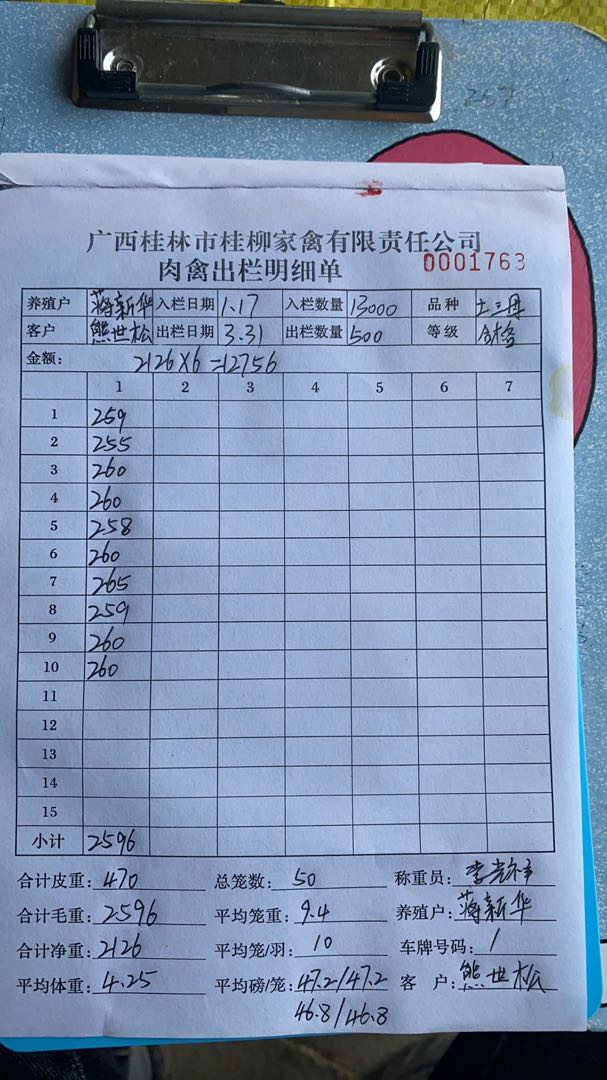 广西桂林市桂柳家禽有限责任公司
肉禽出栏明细单 0001763
养殖户 蒋新华 入栏日期 1.17 入栏数量 13000 品种 土三丹
客户 熊世松 出栏日期 3.31 出栏数量 500 等级 合格
金额: 2126X6=12756
1 2 3 4 5 6 7
1 259
2 255
3 260
4 260
5 258
6 260
7 265
8 259
9 260
10 260
11
12
13
14
15
小计 2596
合计皮重: 470 总笼数: 50 称重员:
合计毛重: 2596 平均笼重: 9.4 养殖户: 蒋新华
合计净重: 2126 平均笼/羽: 10 车牌号码: /
平均体重: 4.25 平均磅/笼: 47.2/47.2 客 户: 熊世松
46.8/46.8